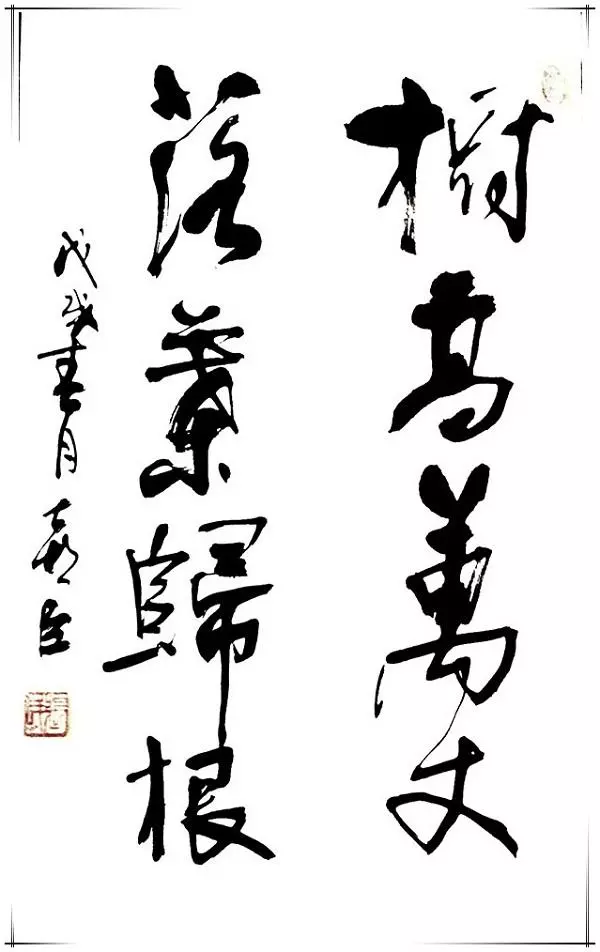 樹高萬丈
落葉歸根
戊戌春月